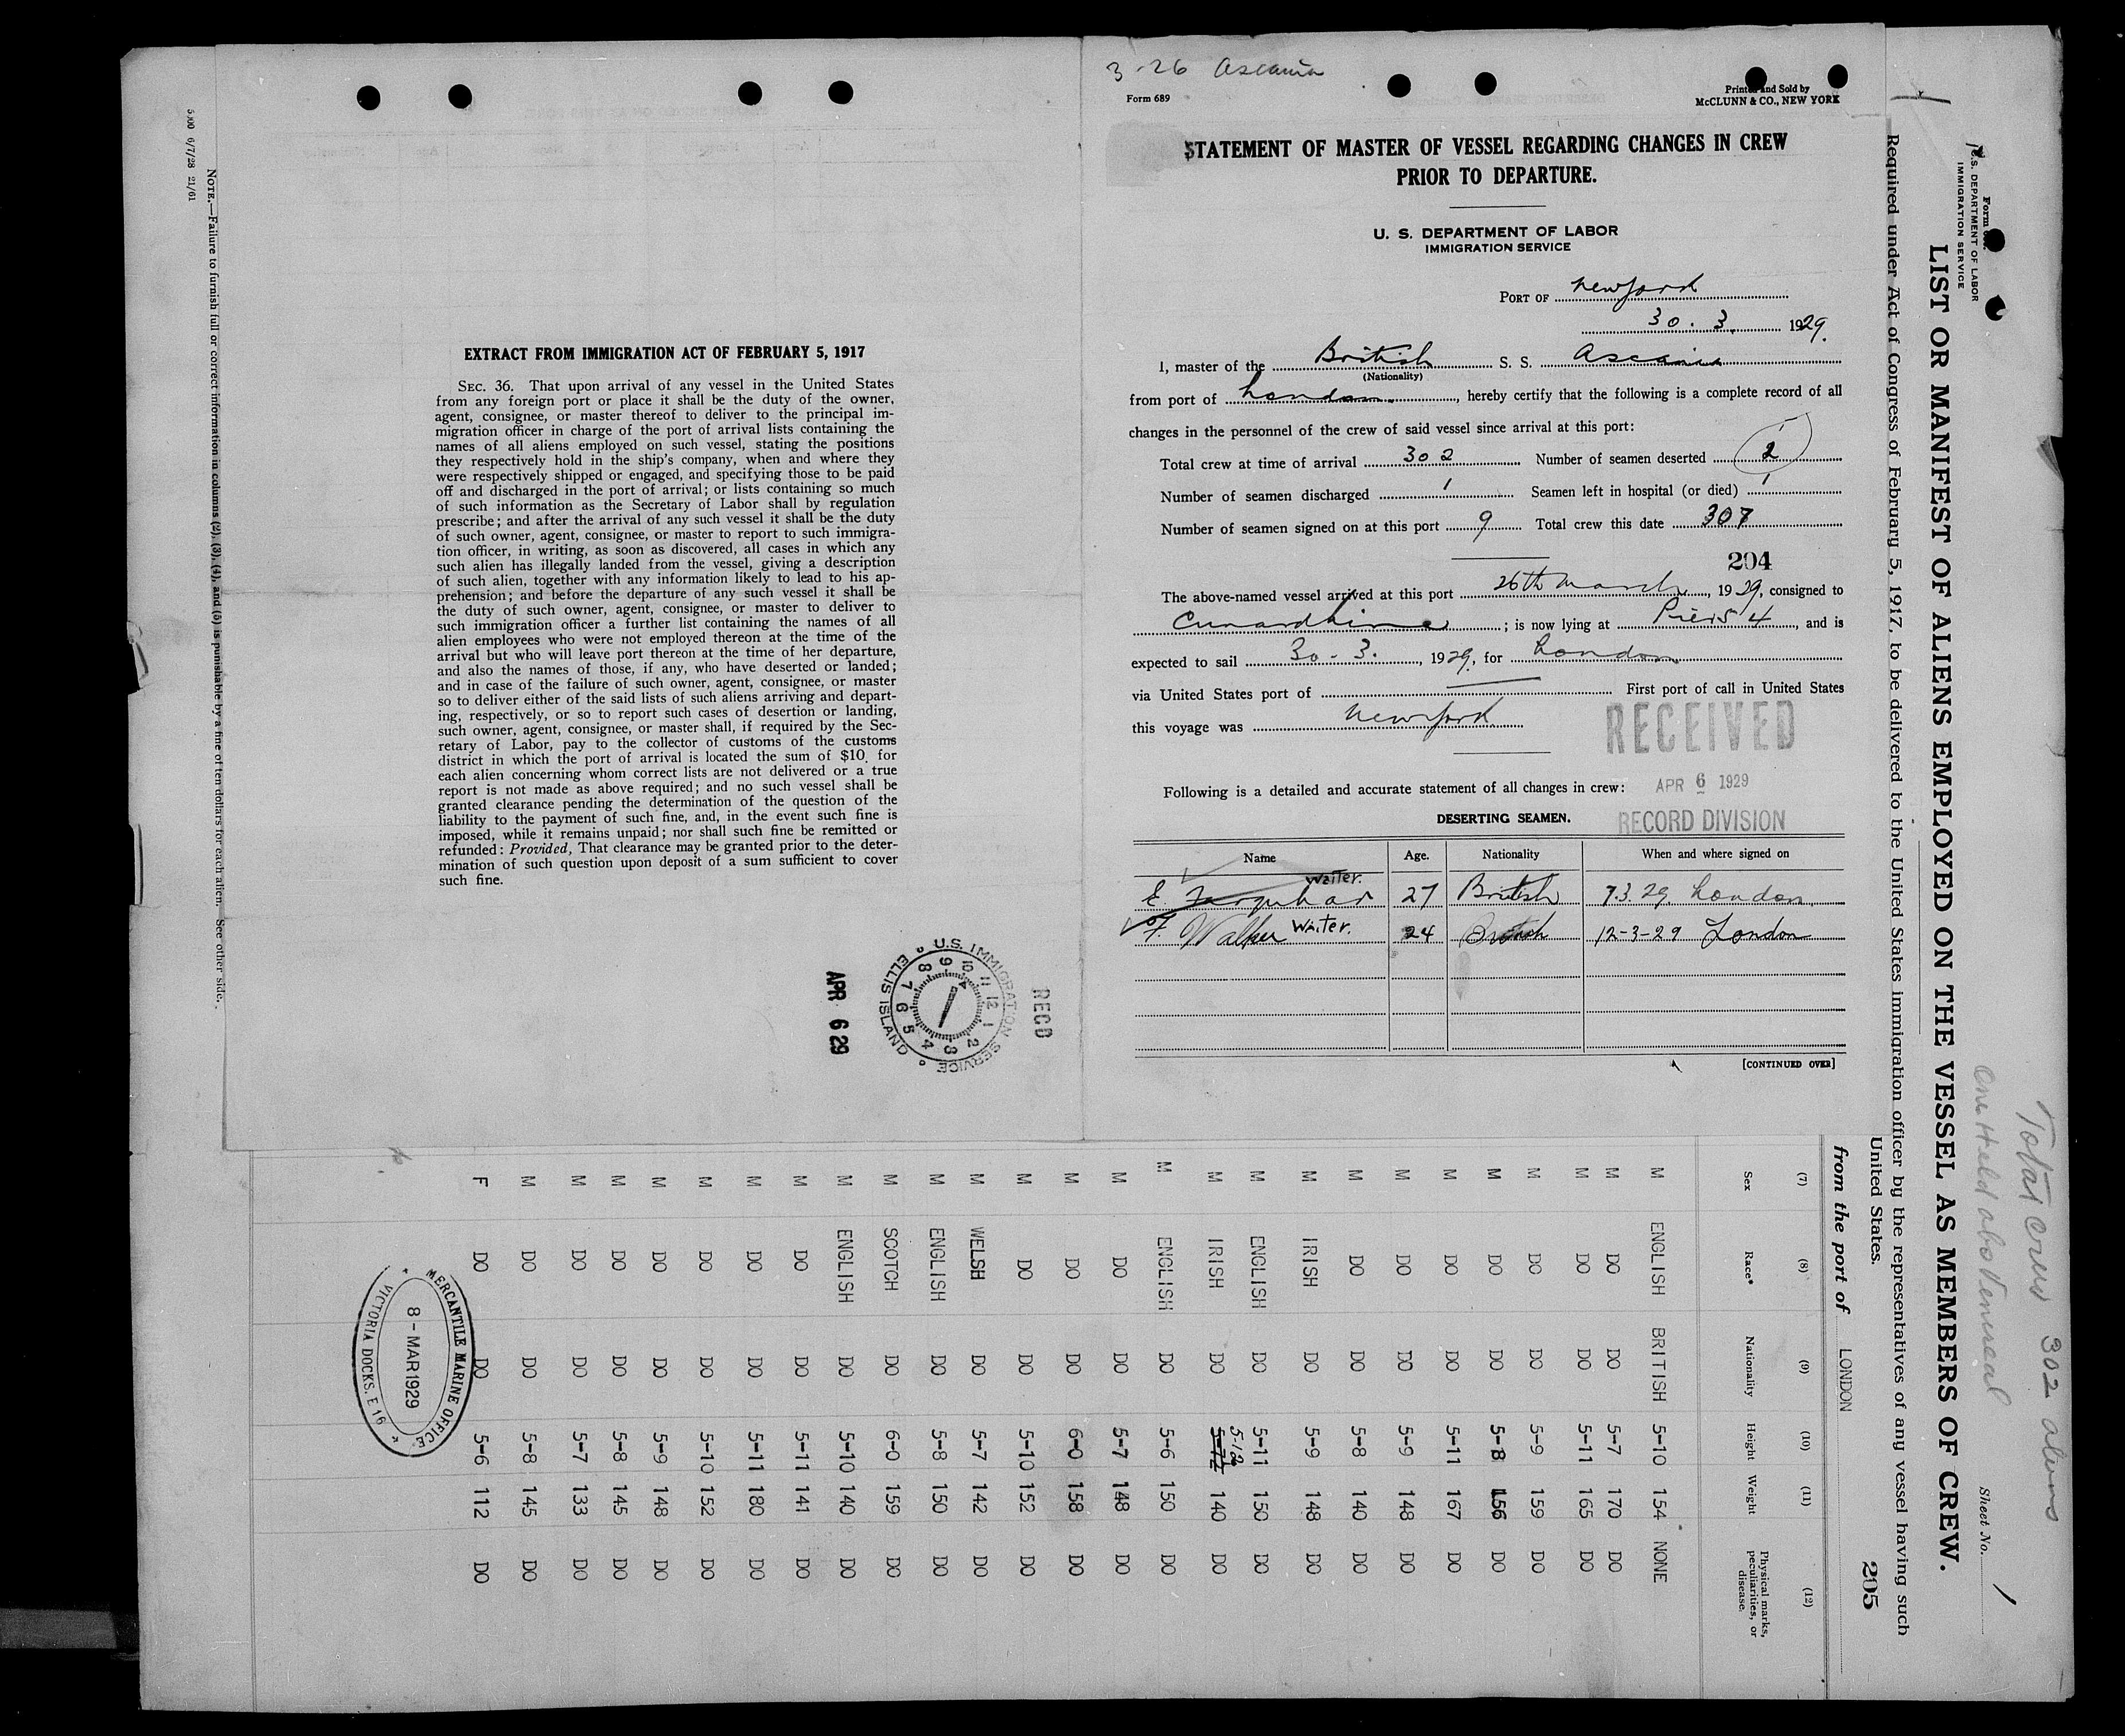 5,000 6/7/28 21/61
NOTE.—Failure to furnish full or correct information in columns (2), (3), (4), and (5) is punishable by a fine of ten dollars for each alien. See other side.
EXTRACT FROM IMMIGRATION ACT OF FEBRUARY 5, 1917
SEC. 36. That upon arrival of any vessel in the United States
from any foreign port or place it shall be the duty of the owner,
agent, consignee, or master thereof to deliver to the principal im-
migration officer in charge of the port of arrival lists containing the
names of all aliens employed on such vessel, stating the positions
they respectively hold in the ship's company, when and where they
were respectively shipped or engaged, and specifying those to be paid
off and discharged in the port of arrival; or lists containing so much
of such information as the Secretary of Labor shall by regulation
prescribe; and after the arrival of any such vessel it shall be the duty
of such owner, agent, consignee, or master to report to such immigra-
tion officer, in writing, as soon as discovered, all cases in which any
such alien has illegally landed from the vessel, giving a description
of such alien, together with any information likely to lead to his ap-
prehension; and before the departure of any such vessel it shall be
the duty of such owner, agent, consignee, or master to deliver to
such immigration officer a further list containing the names of all
alien employees who were not employed thereon at the time of the
arrival but who will leave port thereon at the time of her departure,
and also the names of those, if any, who have deserted or landed;
and in case of the failure of such owner, agent, consignee, or master
so to deliver either of the said lists of such aliens arriving and depart-
ing, respectively, or so to report such cases of desertion or landing,
such owner, agent, consignee, or master shall, if required by the Sec-
retary of Labor, pay to the collector of customs of the customs
district in which the port of arrival is located the sum of $10 for
each alien concerning whom correct lists are not delivered or a true
report is not made as above required; and no such vessel shall be
granted clearance pending the determination of the question of the
liability to the payment of such fine, and, in the event such fine is
imposed, while it remains unpaid; nor shall such fine be remitted or
refunded: Provided, That clearance may be granted prior to the deter-
mination of such question upon deposit of a sum sufficient to cover
such fine.
RECD
U.S. IMMIGRATION SERVICE
ELLIS ISLAND
12 1 2 3 4 5 6 7 8 9 10 11
APR 6 29
3-26 Ascania
Form 689
Printed and Sold by
McCLUNN & CO., NEW YORK
STATEMENT OF MASTER OF VESSEL REGARDING CHANGES IN CREW
PRIOR TO DEPARTURE.
U. S. DEPARTMENT OF LABOR
IMMIGRATION SERVICE
PORT OF New York
30. 3. 1929.
I, master of the British S. S. Ascania
(Nationality)
from port of London, hereby certify that the following is a complete record of all
changes in the personnel of the crew of said vessel since arrival at this port:
Total crew at time of arrival 302 Number of seamen deserted 2
Number of seamen discharged 1 Seamen left in hospital (or died) 1
Number of seamen signed on at this port 9 Total crew this date 307
204
The above-named vessel arrived at this port 26th March, 1929, consigned to
Cunard Line; is now lying at Pier 54, and is
expected to sail 30-3., 1929, for London
via United States port of — First port of call in United States
this voyage was New York
RECEIVED
Following is a detailed and accurate statement of all changes in crew: APR 6 1929
DESERTING SEAMEN. RECORD DIVISION
Name Age. Nationality When and where signed on
E. Farquhar Waiter. 27 British 7.3.29. London.
F. Walker Waiter. 24 British 12-3-29 London
[CONTINUED OVER]
Total crew 302 aliens
One Held abo Venereal
Form
U.S. DEPARTMENT OF LABOR
IMMIGRATION SERVICE
Sheet No. 1
LIST OR MANIFEST OF ALIENS EMPLOYED ON THE VESSEL AS MEMBERS OF CREW.
Required under Act of Congress of February 5, 1917, to be delivered to the United States immigration officer by the representatives of any vessel having such
United States.
205
from the port of LONDON
(7) (8) (9) (10) (11) (12)
Sex Race* Nationality Height Weight Physical marks, peculiarities, or disease.
M ENGLISH BRITISH 5-10 154 NONE
M DO DO 5-7 170 DO
M DO DO 5-11 165 DO
M DO DO 5-9 159 DO
M DO DO 5-8 156 DO
M DO DO 5-11 167 DO
M DO DO 5-9 148 DO
M DO DO 5-8 140 DO
M IRISH DO 5-9 148 DO
M ENGLISH DO 5-11 150 DO
M IRISH DO 140 DO
M ENGLISH DO 5-6 150 DO
M DO DO 5-7 148 DO
M DO DO 6-0 158 DO
M DO DO 5-10 152 DO
M WELSH DO 5-7 142 DO
M ENGLISH DO 5-8 150 DO
M SCOTCH DO 6-0 159 DO
M ENGLISH DO 5-10 140 DO
M DO DO 5-11 141 DO
M DO DO 5-11 180 DO
M DO DO 5-10 152 DO
M DO DO 5-9 148 DO
M DO DO 5-8 145 DO
M DO DO 5-7 133 DO
M DO DO 5-8 145 DO
F DO DO 5-6 112 DO
MERCANTILE MARINE OFFICE
8 - MAR 1929
VICTORIA DOCKS. E 16